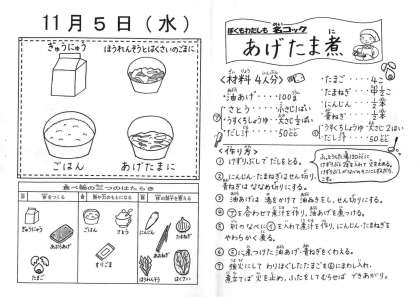 11月5日(水)
ぎゅうにゅう
ほうれんそうとはくさいのごまに
ごはん
あげたまに
食べ物の三つのはたらき
ぎゅうにゅう
あぶらあげ
たまご
ごはん
さとう
すりごま
にんじん
たまねぎ
ほうれんそう
はくさい
ぼくもわたしも 名コック
あげたま煮
〈材料 4人分〉
・油あげ・・・・・100g
・さとう・・・・小さじ1ぱい
・うすくちしょうゆ・・大さじ1ぱい
・だし汁・・・・50cc
・たまご・・・・4こ
・たまねぎ・・・
・にんじん・・・
・青ねぎ・・・
・うすくちしょうゆ・・
・だし汁・・・・50cc
〈作り方〉
① けずりぶしでだしをとる。
② にんじん・たまねぎはせん切り、
青ねぎはななめ切りにする。
③ 油あげは 湯をかけて 油ぬきをし、せん切りにする。
④ ㋐を合わせて煮汁を作り、油あげを煮つける。
⑤ 別のなべに㋑を入れて煮汁を作り、にんじん・たまねぎを
やわらかく煮る。
⑥ ⑤に煮つけた油あげ・青ねぎをくわえる。
⑦ 強火にして わりほぐしたたまごを⑥にまわし入れ、
煮立てば 火を止め、ふたをしてむらせば できあがり。